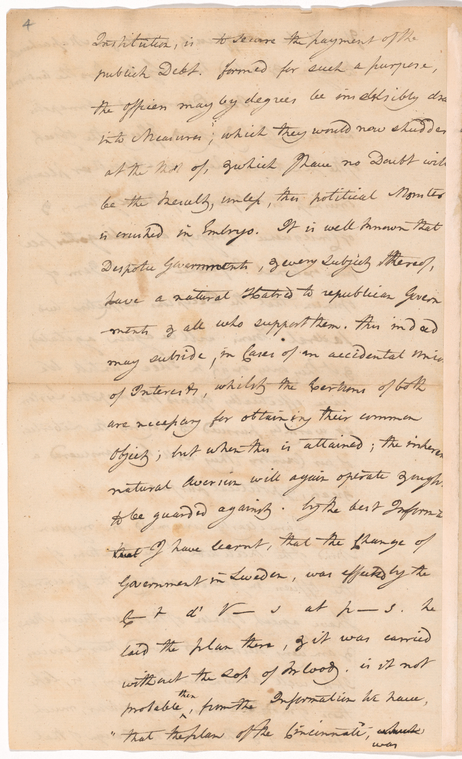 4
Institution, is to secure the payment of the
publick Debt. formed for such a purpose,
the officers may by degrees be insensibly dra
into Measures; which they would now shudder
at the tho't of, & which I have no Doubt will
be the Result, unless, this political Monster
is crushed in Embryo. It is well known that
Despotic Governments, & every subject thereof,
have a natural Hatred to republican Govern
ments & all who support them. this indeed
may subside, in Cases of an accidental Union
of Interests, whilst the Exertions of both
are necessary for obtaining their common
Object; but when this is attained; the inheren
natural Aversion will again operate & ought
to be guarded against. by the best Informa
I have learnt, that the Change of
Government in Sweden, was effected by the
C— t d' V— s at p— s. he
laid the plan there, & it was carried
without the Loss of Blood. is it not
probable then, from the Information We have,
"that the plan of the Cincinnati", which
was